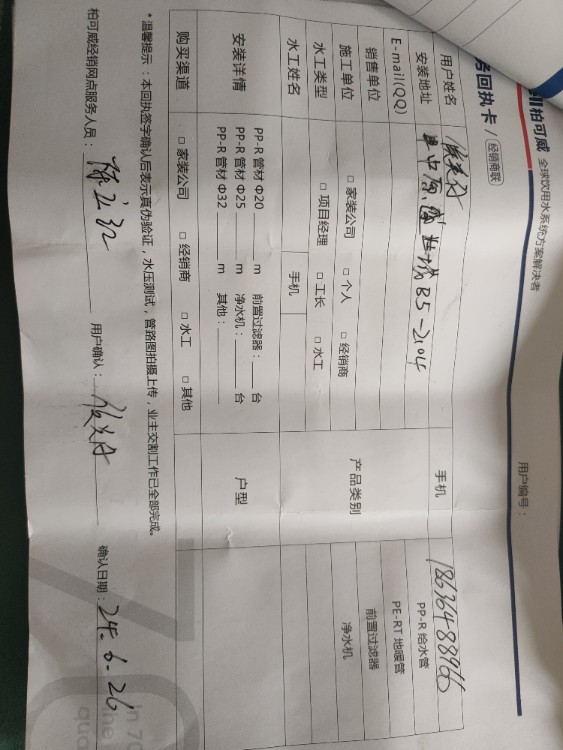 柏可威 全球饮用水系统方案解决者
务回执卡 / 经销商联
用户编号：
用户姓名 手机 18636488966
安装地址 B5-2104
E-mail(QQ)
销售单位
施工单位 □ 家装公司 □ 个人 □ 经销商
水工类型 □ 项目经理 □ 工长 □ 水工
水工姓名 手机
产品类别
PP-R 给水管
PE-RT 地暖管
前置过滤器
净水机
安装详情
PP-R 管材 Φ20 m 前置过滤器： 台
PP-R 管材 Φ25 m 净水机： 台
PP-R 管材 Φ32 m 其他：
户型
购买渠道 □ 家装公司 □ 经销商 □ 水工 □ 其他
*温馨提示：本回执签字确认后表示真伪验证，水压测试，管路图拍摄上传，业主交割工作已全部完成。
柏可威经销网点服务人员： 用户确认： 确认日期：24. 6. 26
in 70
he
qua